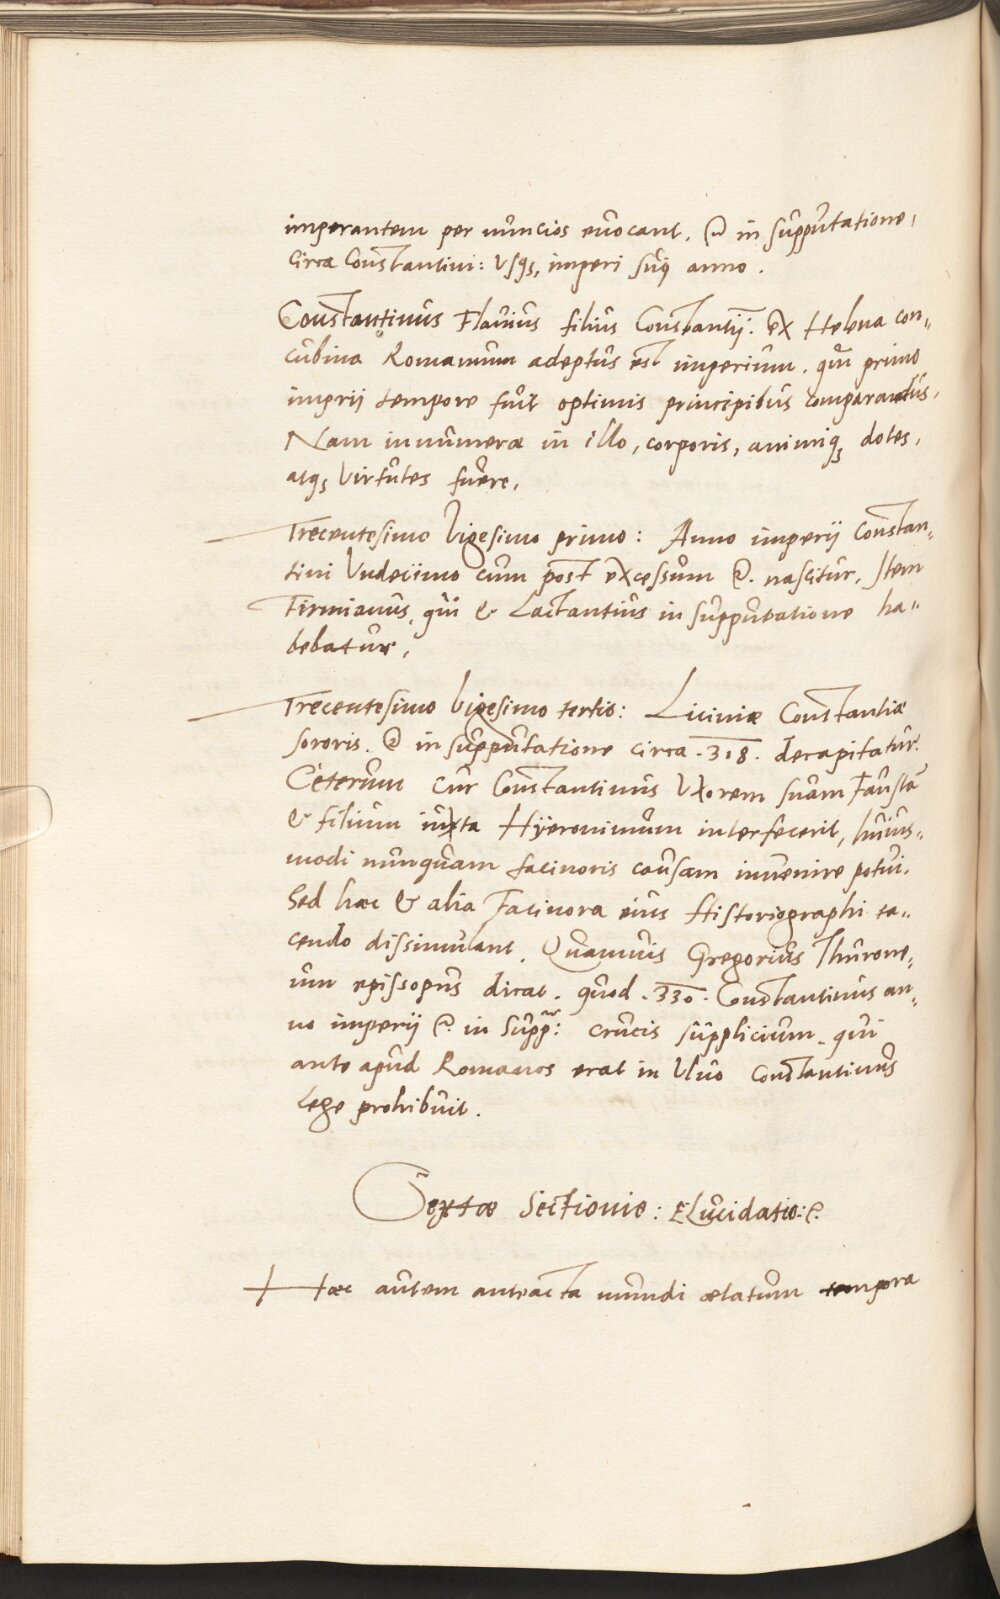 imperantem per nuncios euocant. @ in supputatione,
circa Constantini: Usq3, imperi suij anno.
Constantinus Flauius filius Constantij. ex Helena con„
cubina Romanum adeptus est imperium. qui primo
imprii tempore fuit optimis principibus comparandus,
Nam innumerae in illo, corporis, animiq3 dotes,
atq3 Virtutes fuere,
Trecentesimo Vigesimo primo: Anno imperii Constan„
tini Vndecimo cum post excessum @. nascitur, Item
Firmianus, qui & Lactantius in supputatione ha„
bebatur,
Trecentesimo Vigesimo tertio: Liciniae Constantiae
sororis. @ in supputatione circa .318. decapitatur.
Ceterum cur Constantinus Vxorem suam Faustā
& filium iuxta Hÿeronimum interfecerit, huius„
modi nunquam facinoris causam inuenire potui.
Sed haec & alia Facinora eius Historiographi ta„
cendo dissimulant. Quamuis Gregorius Thurone„
um episcopus dicat. quod .330. Constantinus an„
no imperij @. in Supp: crucis supplicium. qui
ante apud Romanos erat in Vsuo Constantinus
Lege prohibuit.
Sextae Sectionis: ELucidatio: @.
Haec autem anteacta mundi aetatum tempora